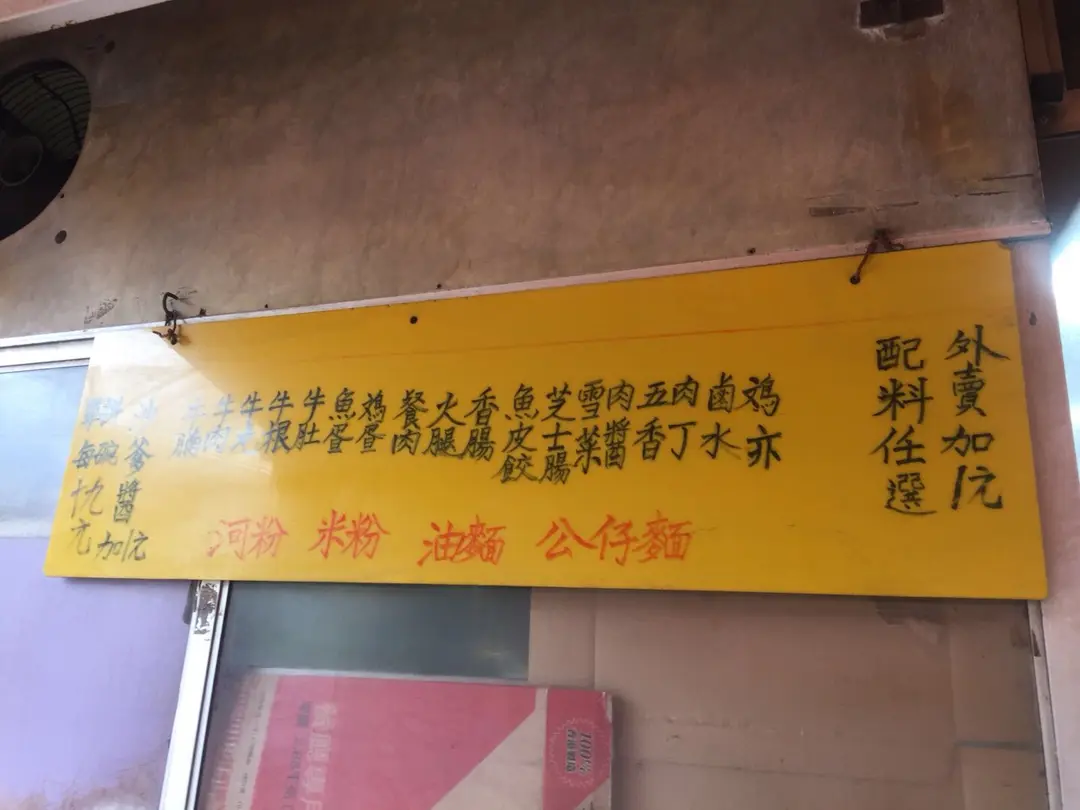 外賣加1元
配料任選
鸡亦
鹵水
肉丁
五香
肉醬
雪菜
芝士腸
魚皮餃
香腸
火腿
餐肉
鸡蛋
魚蛋
牛肚
牛根
牛丸
牛肉
牛腩
沙爹醬加1元
每碗十九元
河粉 米粉 油麵 公仔麵
100%